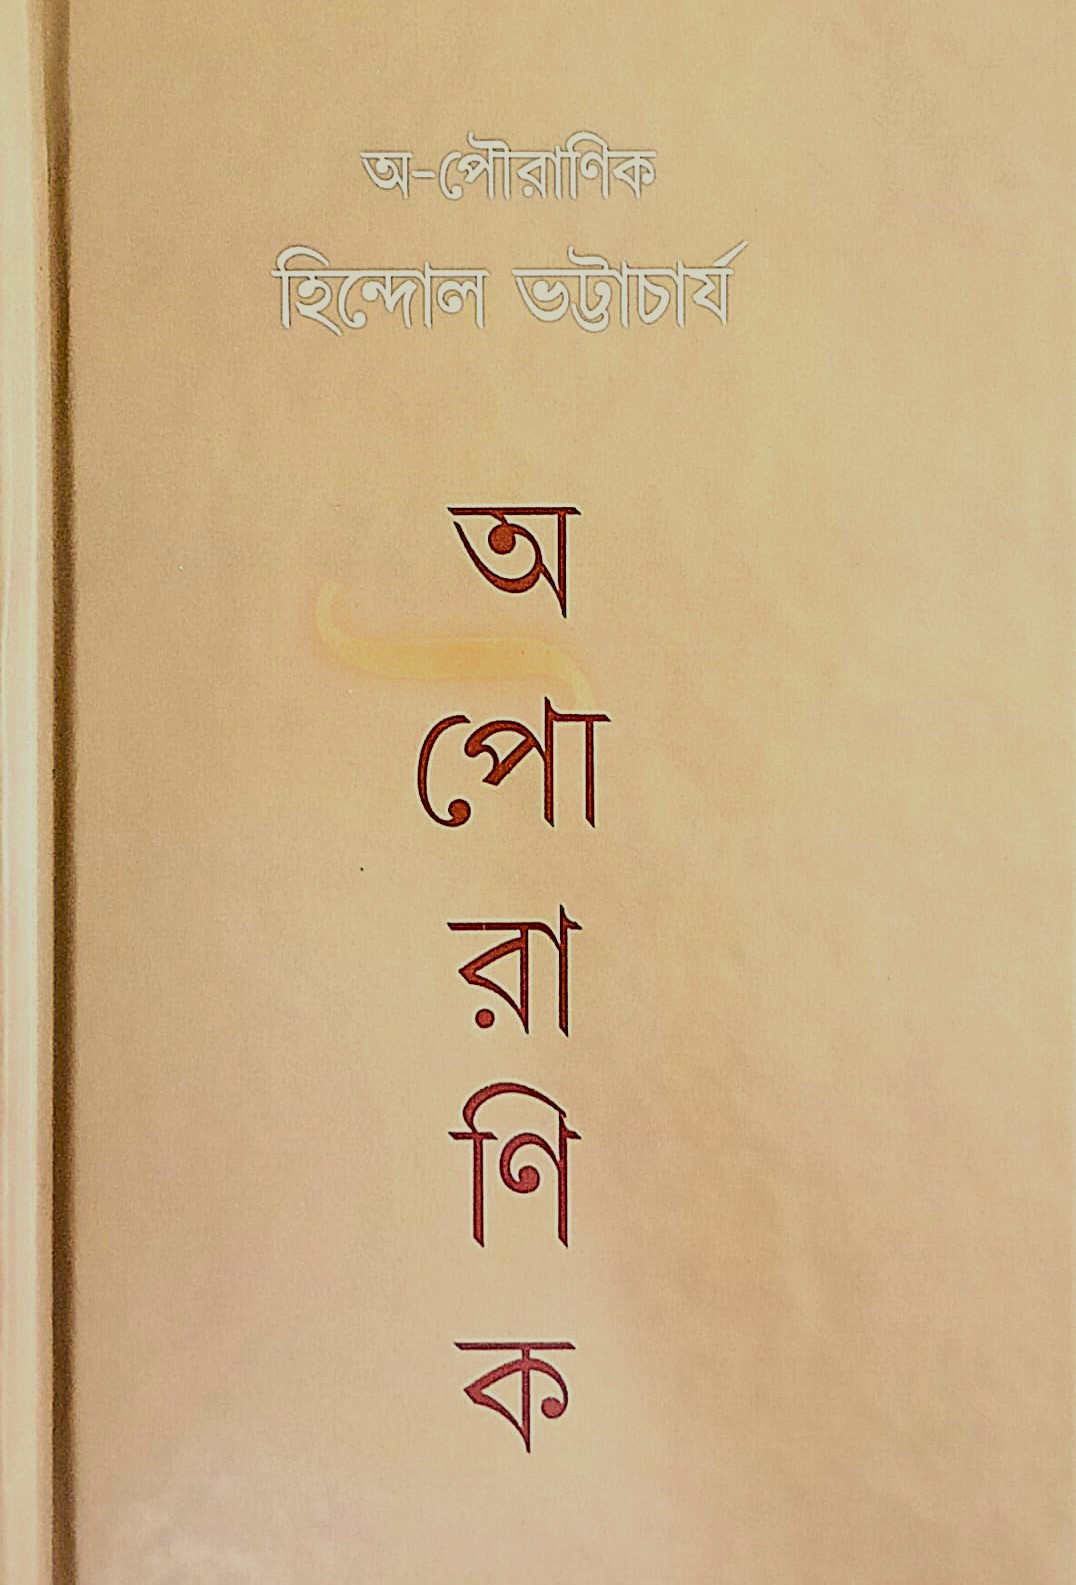 অ-পৌরাণিক
হিন্দোল ভট্টাচার্য
অ
পৌ
রা
ণি
ক